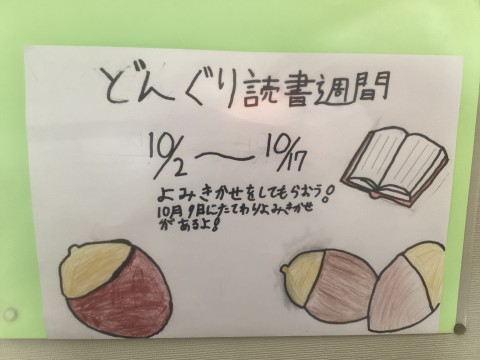 どんぐり読書週間
10/2〜10/17
よみきかせをしてもらおう!
10月9日にたてわりよみきかせ
があるよ!